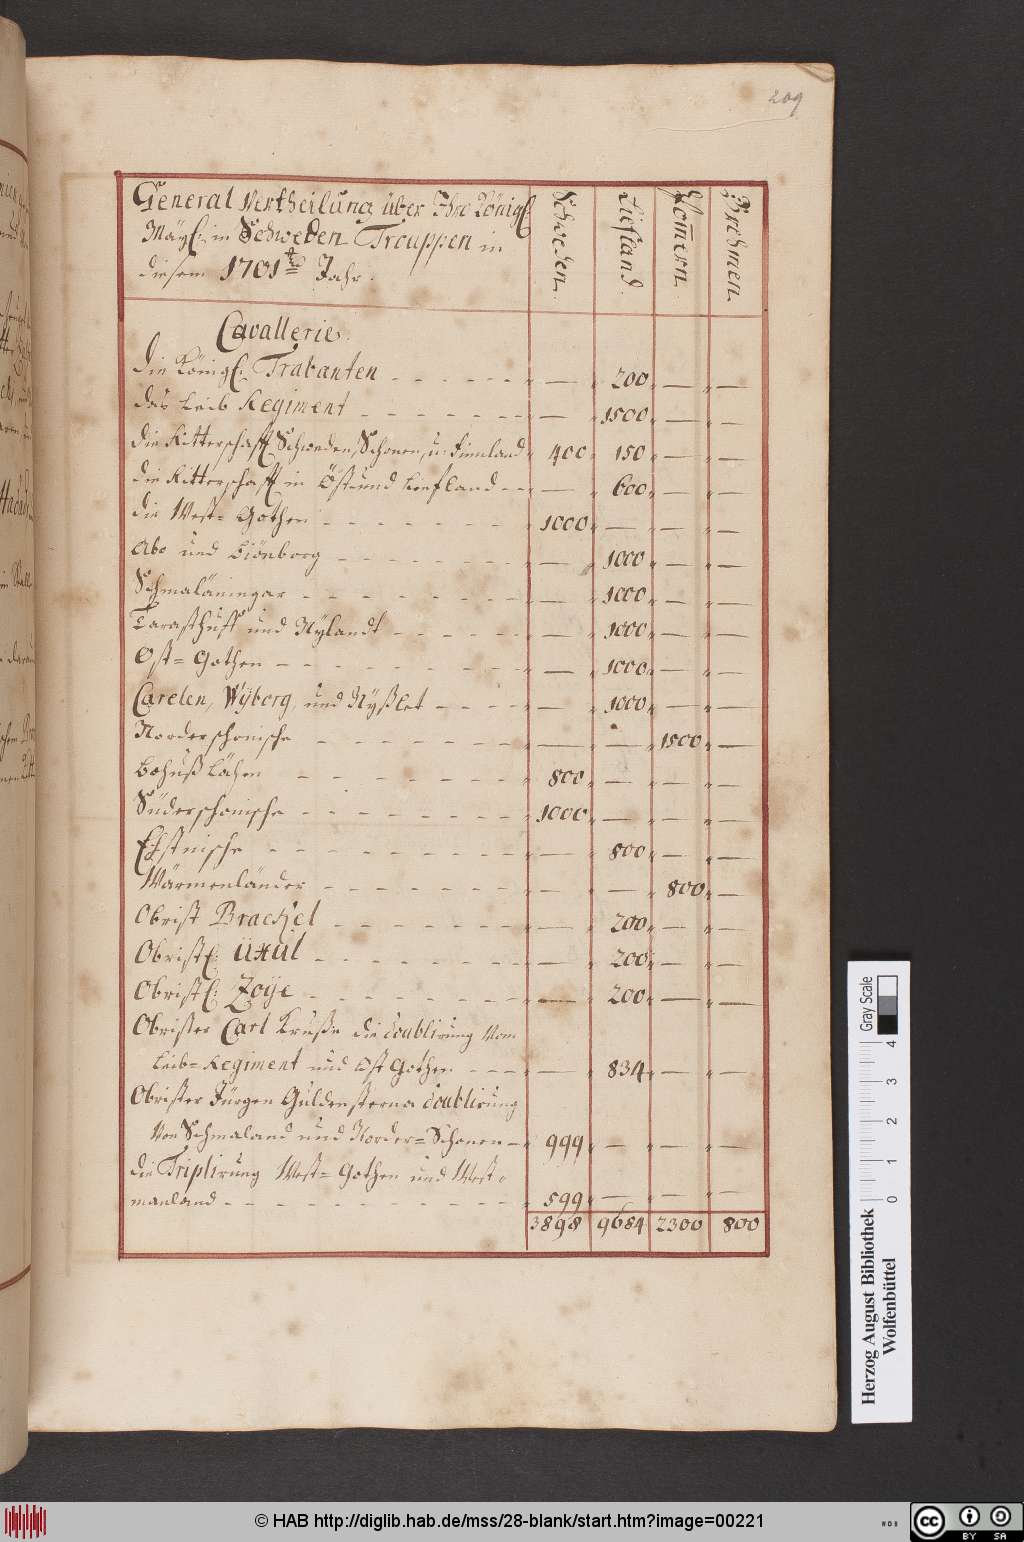 209
General Vertheilung über Ihro Königl.
Mäyt. in Schweden Trouppen in
diesem 1701 Jahr.
Schweden
Liefland.
Pom̄ern.
Brehmen.
Cavallerie.
Die Königl. Trabanten - - - - - - — 200 — —
das Leib Regiment - - - - - - - — 1500 — —
die Ritterschafft Schweden, Schonen, u: Finnland 400 150 — —
die Ritterschafft in Öst- und Liefland - - — 600 — —
die West= Gothen - - - - - - - 1000 — — —
Abo und Biönborg - - - - - - - — 1000 — —
Schmaläningar - - - - - - - - — 1000 — —
und Nÿlandt - - - - - — 1000 — —
Ost= Gothen - - - - - - - - - — 1000 — —
Carelen, Wÿborg, und Nÿßlet - - - - — 1000 — —
Norderschonische - - - - - - - — — 1500 —
Bohuß Lähn - - - - - - - - 800 — — —
Süderschonische - - - - - - - - 1000 — — —
Ehstnische - - - - - - - - - — 800 — —
Wärmenländer - - - - - - - - — — 800 —
Obrist Brackel - - - - - - - — 200 — —
Obristl: Üxul - - - - - - - - — 200 — —
Obristl: Zoije - - - - - - - - — 200 — —
Obrister Carl Kruße die doublirung Vom
Leib=Regiment und Ost Gothen - - - — 834 — —
Obrister Jürgen Güldensterna doublirung
Von Schmaland und Norder=Schonen - 999 — — —
die Triplirung West= Gothen und West=
manland - - - - - - - - - - - 599 — — —
3898 9684 2300 800
Gray Scale
0 1 2 3 4
Herzog August Bibliothek
Wolfenbüttel
© HAB http://diglib.hab.de/mss/28-blank/start.htm?image=00221
WDB
cc BY SA